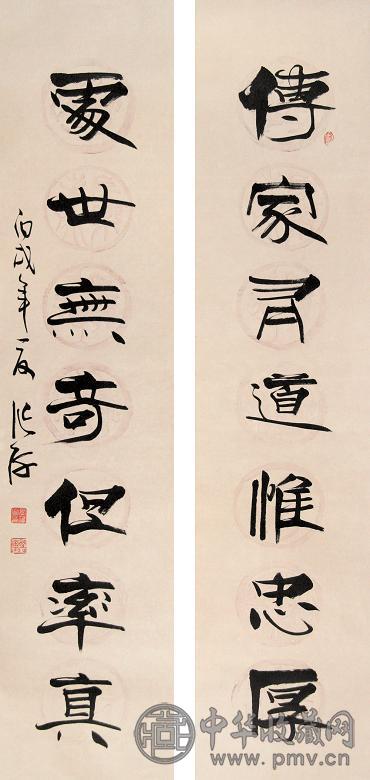 傳家有道惟忠厚
處世無奇但率真
丙戌年夏
中华收藏网
www.pmv.cn